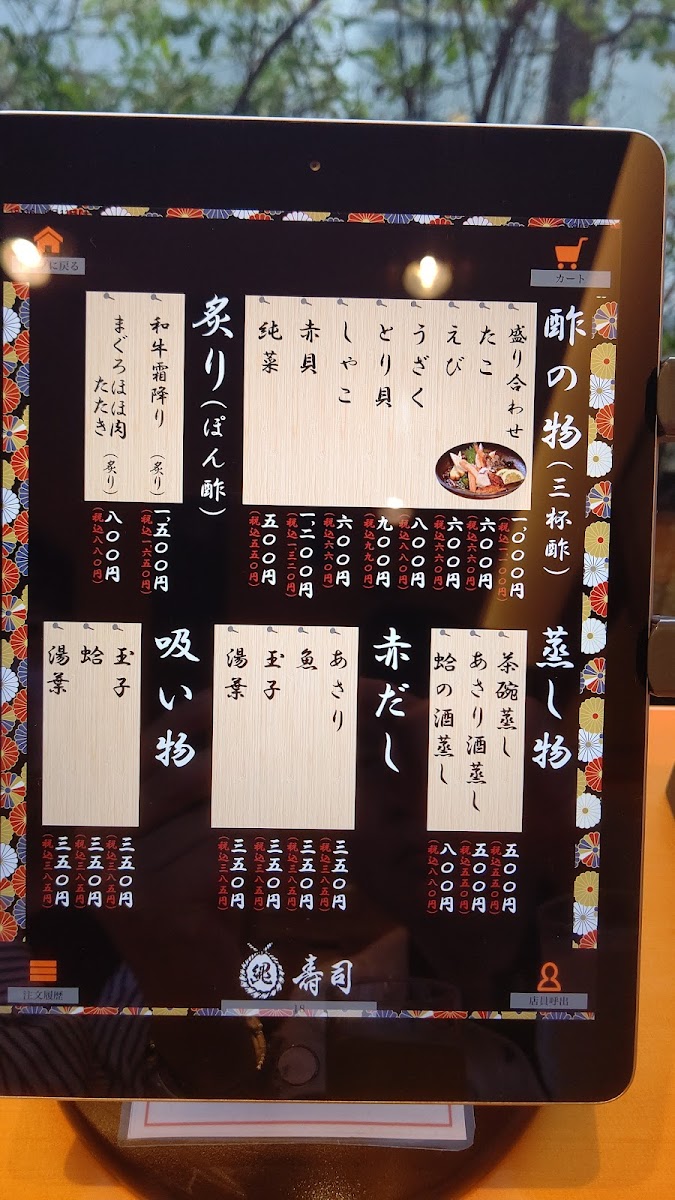 カート
酢の物(三杯酢)
盛り合わせ
一、〇〇〇円
(税込一、一〇〇円)
たこ
六〇〇円
(税込六六〇円)
えび
六〇〇円
(税込六六〇円)
うざく
八〇〇円
(税込八八〇円)
とり貝
九〇〇円
(税込九九〇円)
しゃこ
六〇〇円
(税込六六〇円)
赤貝
一、二〇〇円
(税込一、三二〇円)
純菜
五〇〇円
(税込五五〇円)
炙り(ぽん酢)
和牛霜降り(炙り)
一、五〇〇円
(税込一、六五〇円)
まぐろほほ肉
たたき(炙り)
八〇〇円
(税込八八〇円)
蒸し物
茶碗蒸し
五〇〇円
(税込五五〇円)
あさり酒蒸し
五〇〇円
(税込五五〇円)
蛤の酒蒸し
八〇〇円
(税込八八〇円)
赤だし
あさり
三五〇円
(税込三八五円)
魚
三五〇円
(税込三八五円)
玉子
三五〇円
(税込三八五円)
湯葉
三五〇円
(税込三八五円)
吸い物
玉子
三五〇円
(税込三八五円)
蛤
三五〇円
(税込三八五円)
湯葉
三五〇円
(税込三八五円)
注文履歴
寿司
18
店員呼出